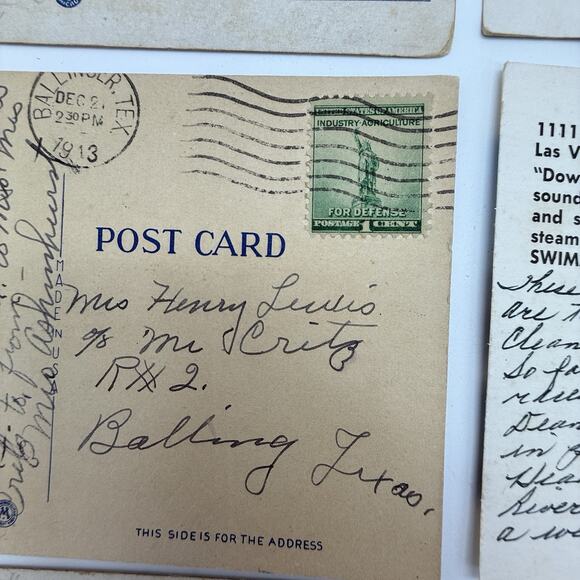 BALLINGER, TEX
DEC 21
2 30 PM
1943
UNITED STATES OF AMERICA
INDUSTRY-AGRICULTURE
FOR DEFENSE
POSTAGE 1 CENT
POST CARD
MADE IN USA
Mrs Henry Lewis
c/o Mr Critz
R# 2.
Balling Texas.
THIS SIDE IS FOR THE ADDRESS
from
Mrs. Ashmhurst
1111
Las V
"Dow
sound
and s
steam
SWIM
These
are t
Clean
So fa
Dean
in g
River
a we